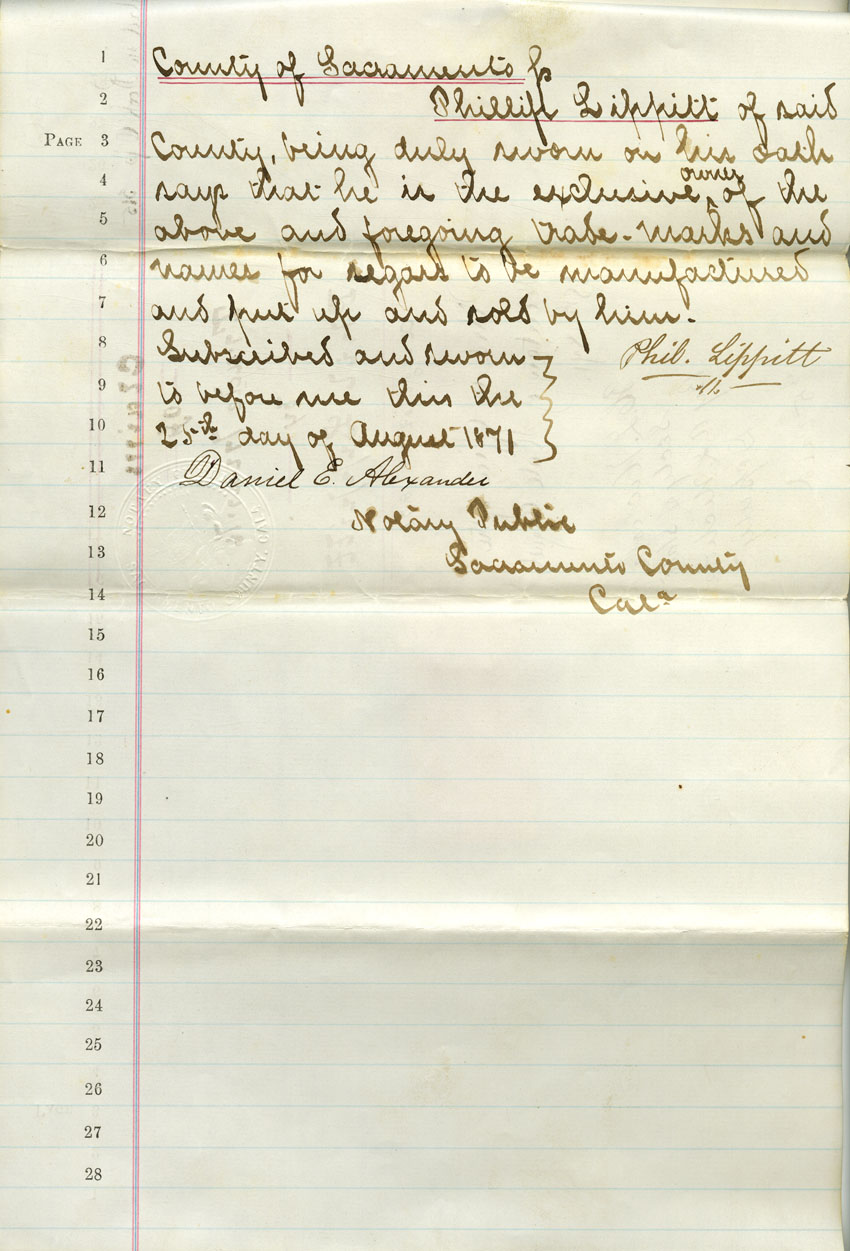 1 County of Sacramento ss
2 Phillip Lippitt of said
PAGE 3 County, being duly sworn on his oath
4 says that he is the exclusive ^owner of the
5 above and foregoing trade-marks and
6 names for segars to be manufactured
7 and put up and sold by him.
8 Subscribed and sworn } Phil. Lippitt
9 to before me this the
10 25th day of August 1871
11 Daniel E. Alexander
12 Notary Public
13 Sacramento County
14 Cala
15
16
17
18
19
20
21
22
23
24
25
26
27
28